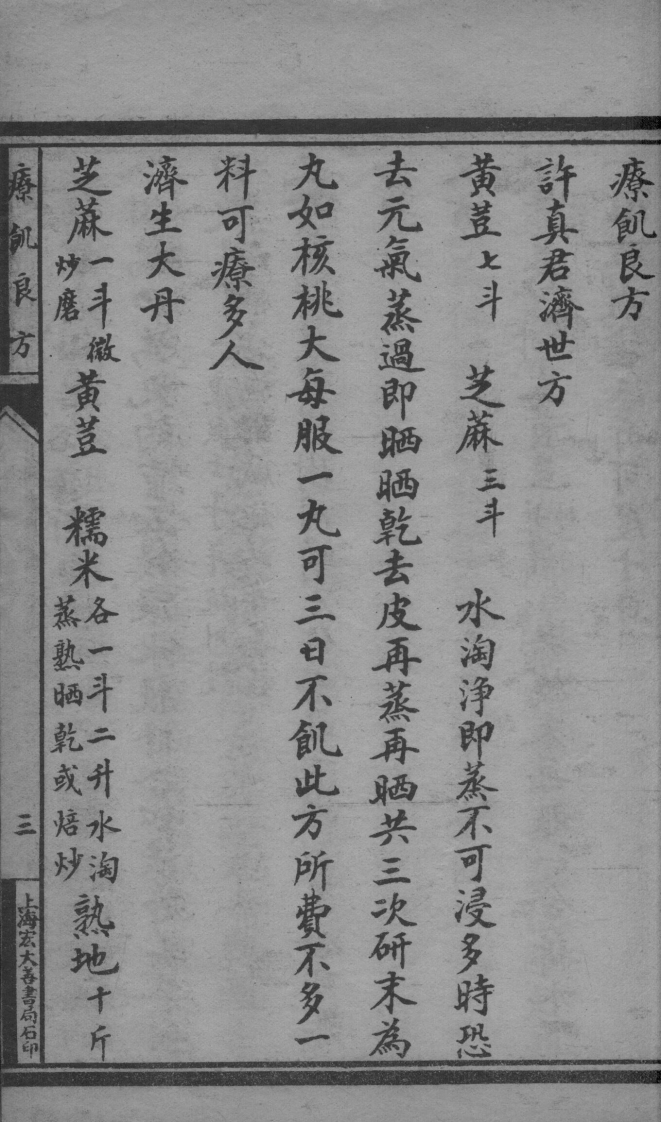 療飢良方
許真君濟世方
黃荳七斗　芝蔴三斗　水淘淨即蒸不可浸多時恐
去元氣蒸過即晒晒乾去皮再蒸再晒共三次研末為
丸如核桃大每服一丸可三日不飢此方所費不多一
料可療多人
濟生大丹
芝蔴一斗微炒磨黃荳　糯米各一斗二升水淘蒸熟晒乾或焙炒熟地十斤
療飢良方　三　上海宏大善書局石印